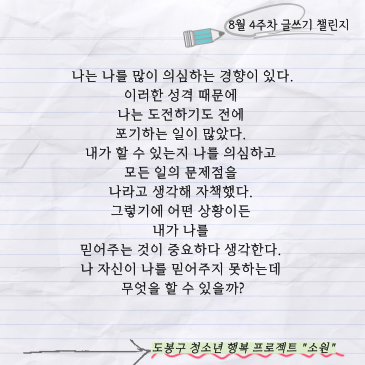 8월 4주차 글쓰기 챌린지
나는 나를 많이 의심하는 경향이 있다.
이러한 성격 때문에
나는 도전하기도 전에
포기하는 일이 많았다.
내가 할 수 있는지 나를 의심하고
모든 일의 문제점을
나라고 생각해 자책했다.
그렇기에 어떤 상황이든
내가 나를
믿어주는 것이 중요하다 생각한다.
나 자신이 나를 믿어주지 못하는데
무엇을 할 수 있을까?
도봉구 청소년 행복 프로젝트 "소원"